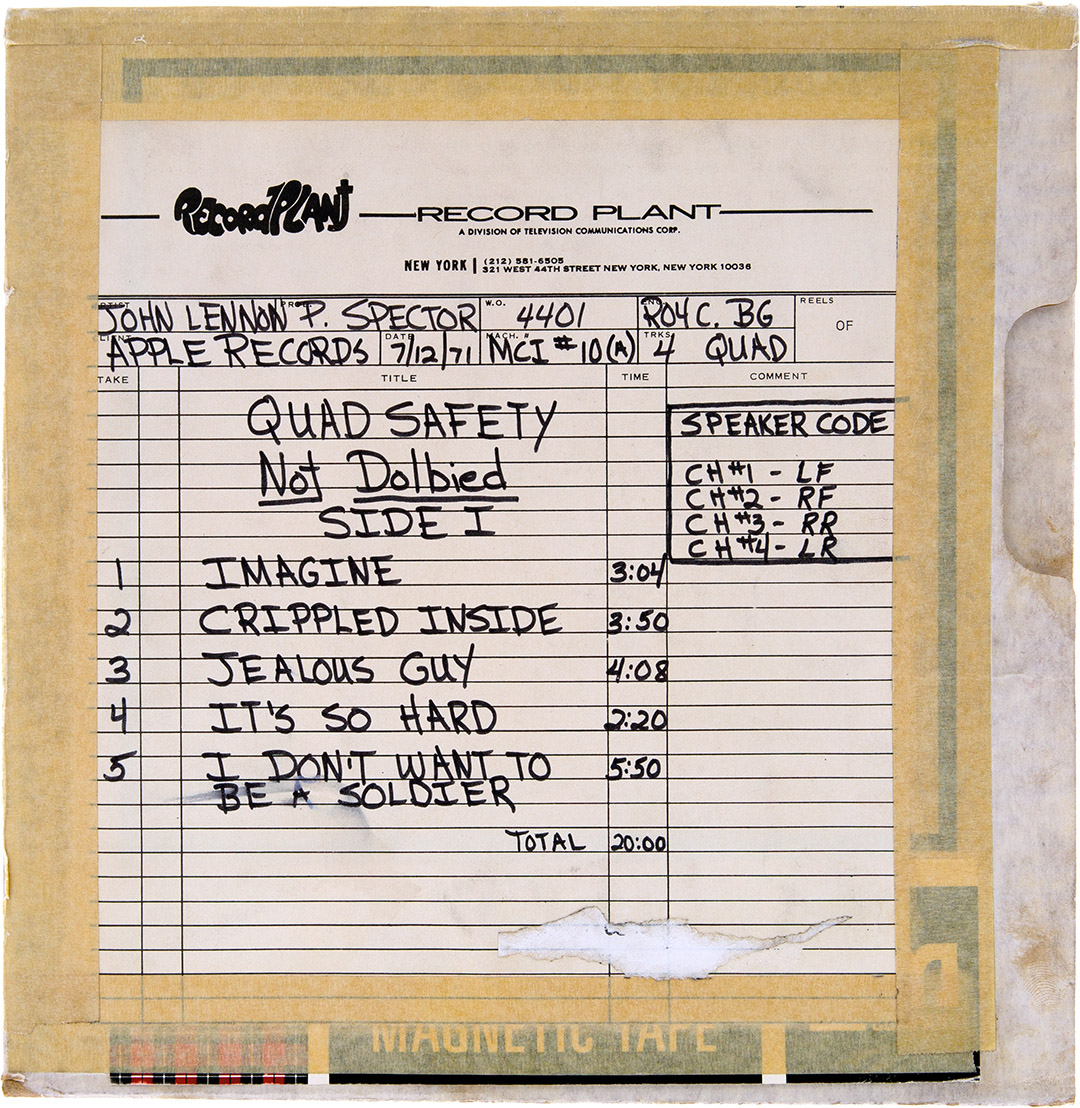 RECORD PLANT
RECORD PLANT
A DIVISION OF TELEVISION COMMUNICATIONS CORP.
NEW YORK | (212) 581-6505
321 WEST 44TH STREET NEW YORK, NEW YORK 10036
W.O. REELS
JOHN LENNON P. SPECTOR 4401 ROY C. BG OF
DATE MACH. # TRKS
APPLE RECORDS 7/12/71 MCI #10(A) 4 QUAD
TAKE TITLE TIME COMMENT
QUAD SAFETY
Not Dolbied
SIDE I
SPEAKER CODE
CH #1 - LF
CH #2 - RF
CH #3 - RR
CH #4 - LR
1 IMAGINE 3:04
2 CRIPPLED INSIDE 3:50
3 JEALOUS GUY 4:08
4 IT'S SO HARD 2:20
5 I DON'T WANT TO 5:50
BE A SOLDIER
TOTAL 20:00
MAGNETIC TAPE